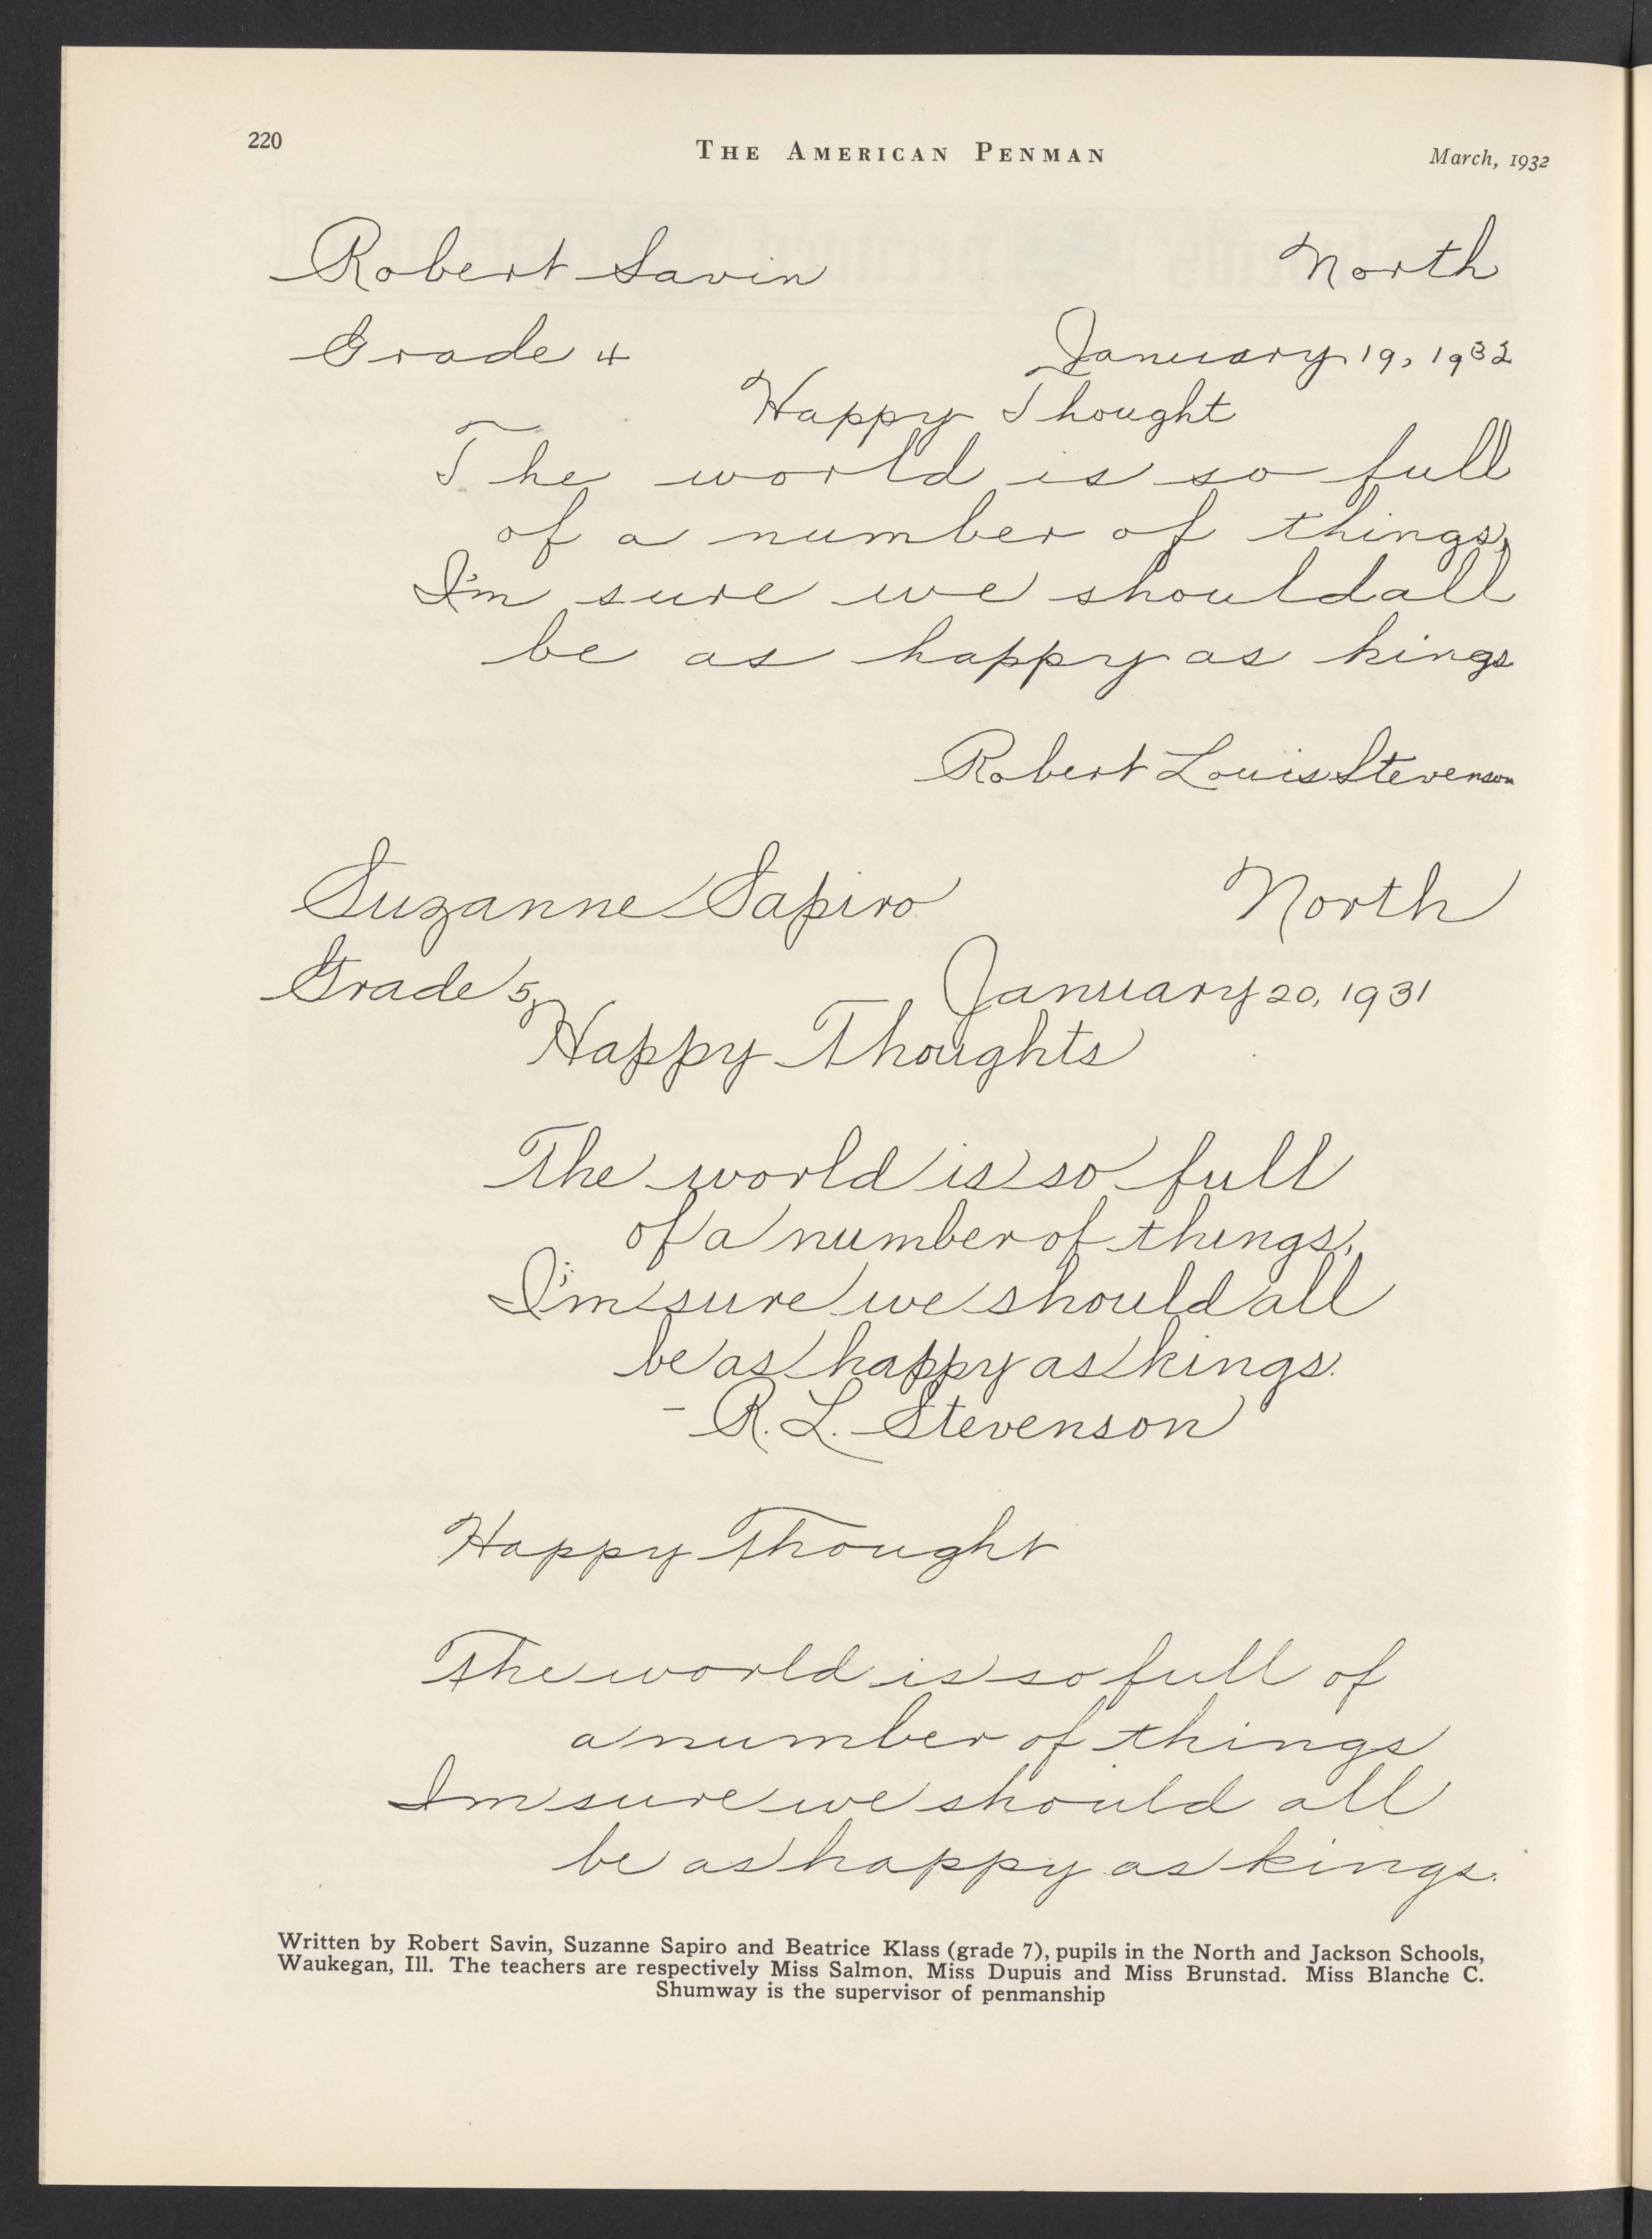 220
THE AMERICAN PENMAN
March, 1932
Robert Savin North
Grade 4 January 19, 1932
Happy Thought
The world is so full
of a number of things,
I'm sure we should all
be as happy as kings
Robert Louis Stevenson
Suzanne Sapiro North
Grade 5 January 20, 1931
Happy Thoughts
The world is so full
of a number of things,
I'm sure we should all
be as happy as kings.
- R. L. Stevenson
Happy Thought
The world is so full of
a number of things
Im sure we should all
be as happy as kings.
Written by Robert Savin, Suzanne Sapiro and Beatrice Klass (grade 7), pupils in the North and Jackson Schools,
Waukegan, Ill. The teachers are respectively Miss Salmon, Miss Dupuis and Miss Brunstad. Miss Blanche C.
Shumway is the supervisor of penmanship